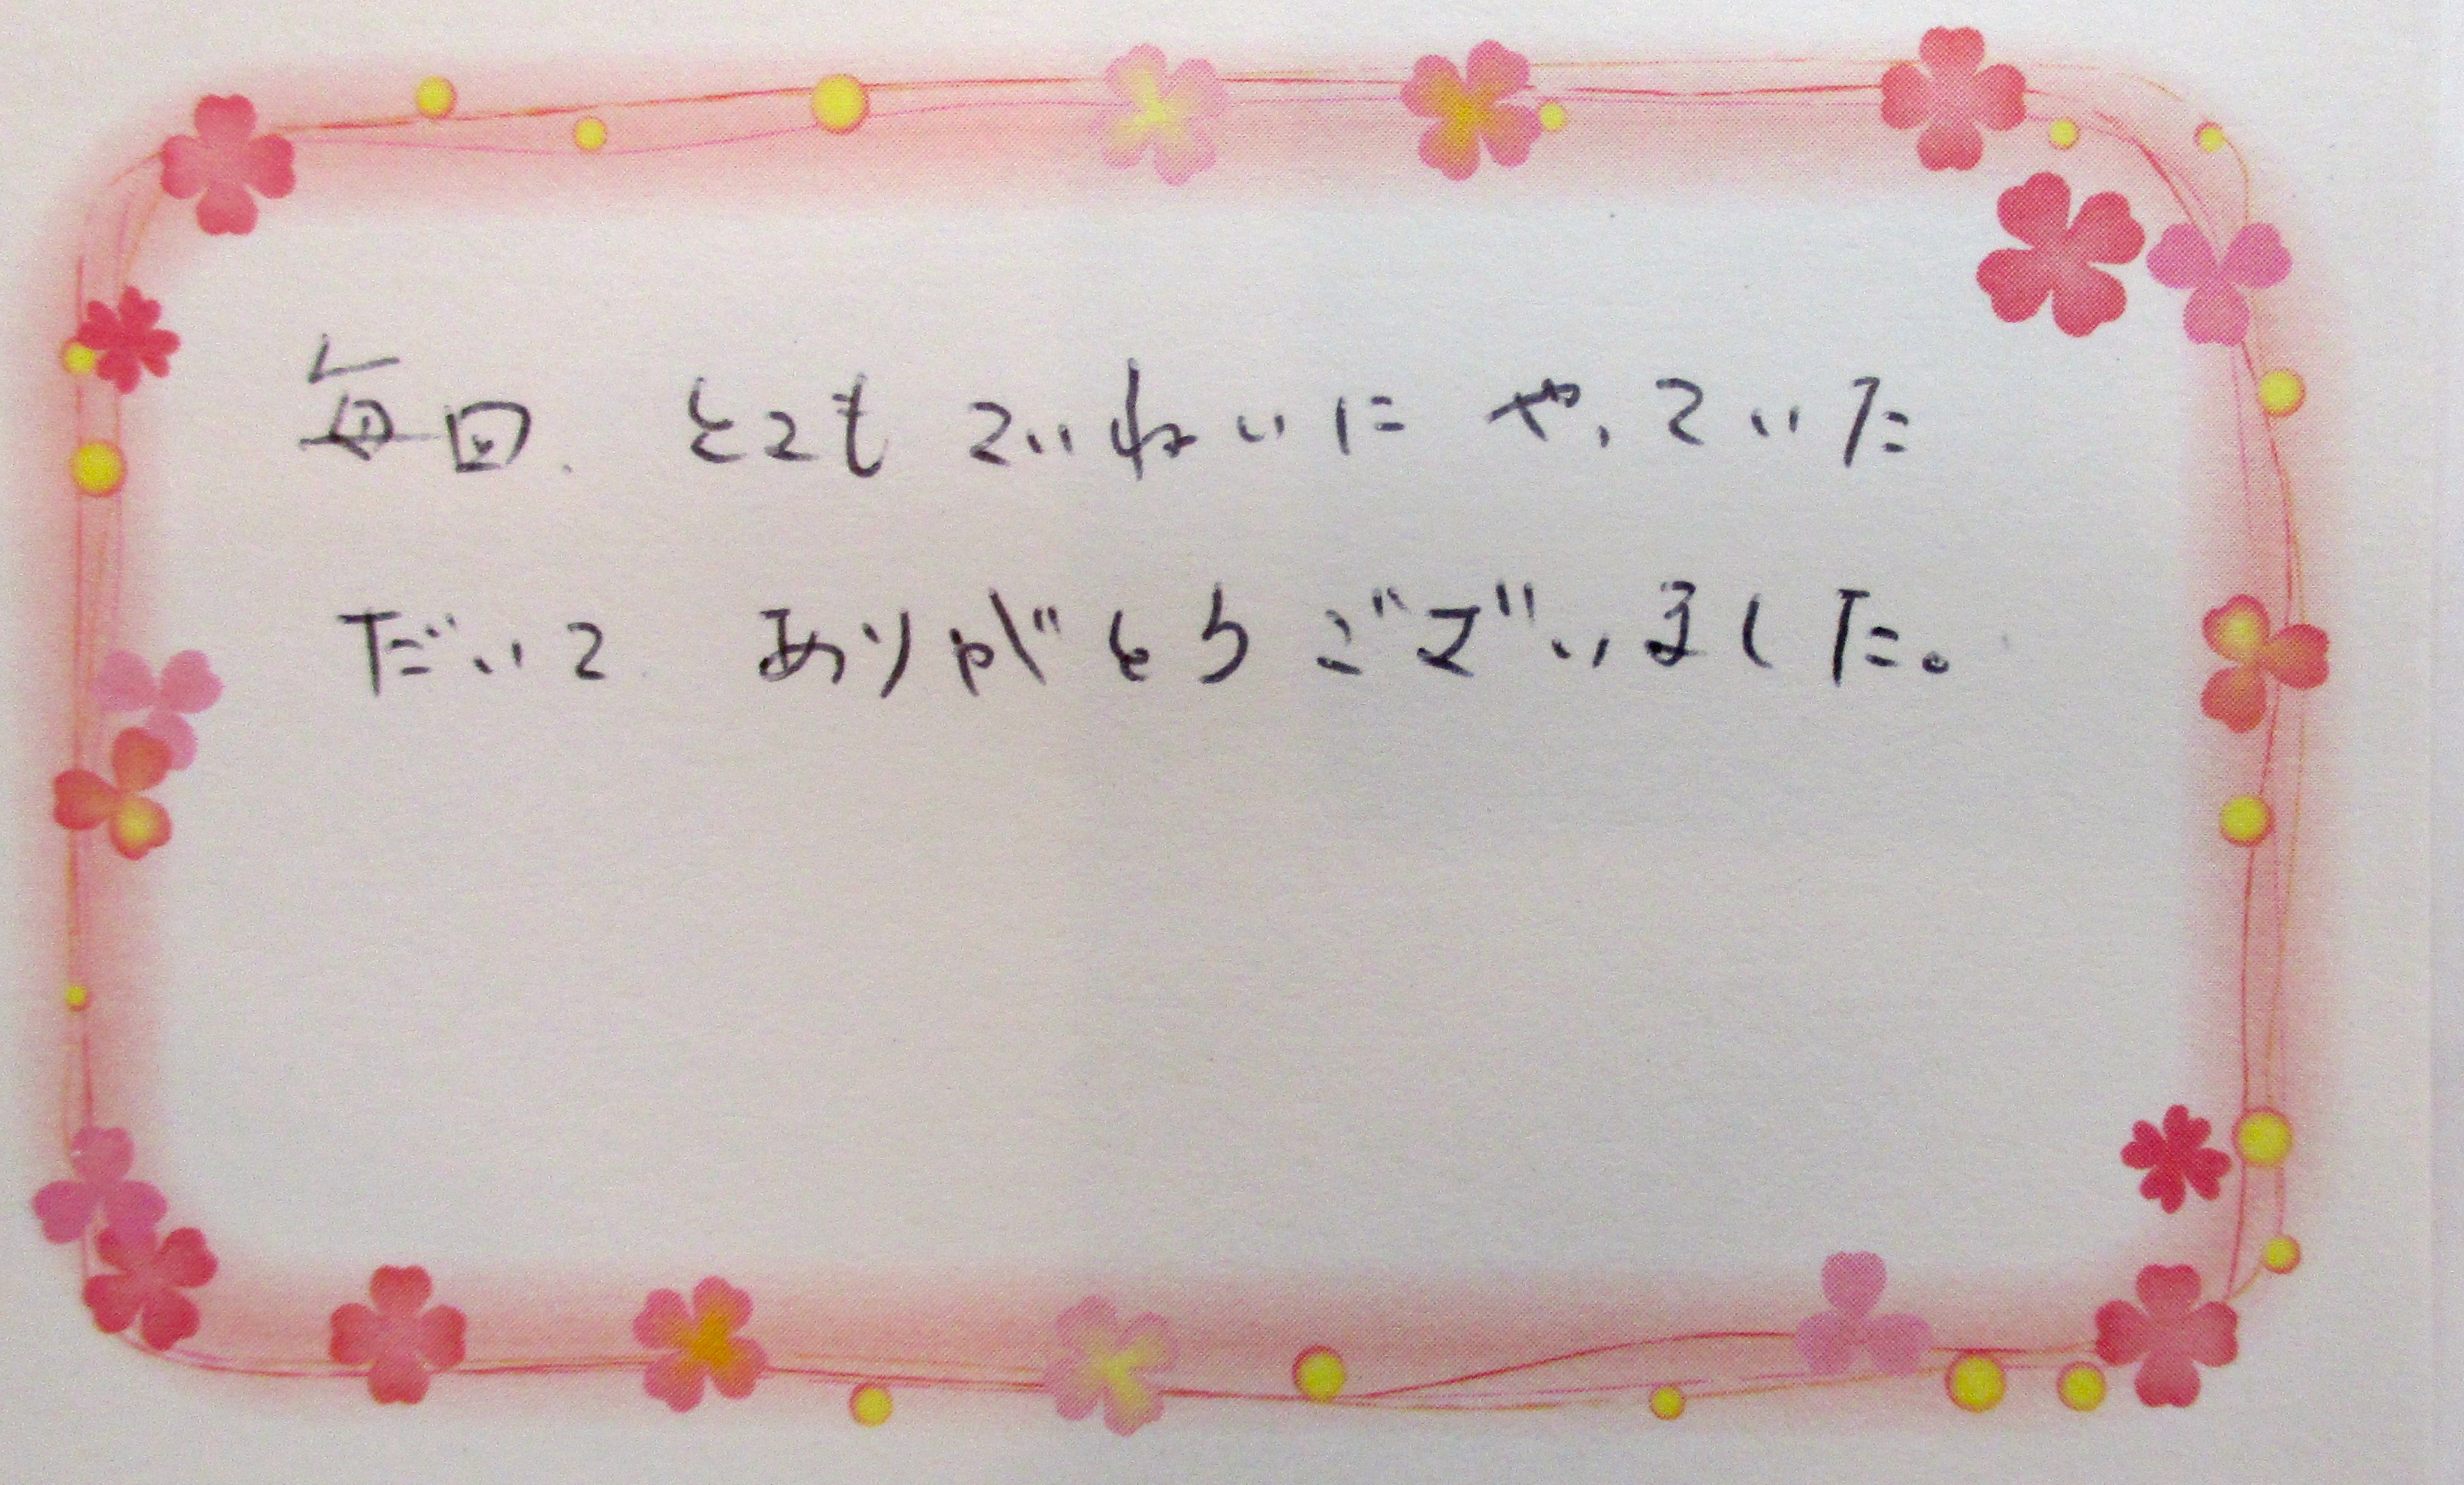 毎回、とてもていねいにやっていた
だいて ありがとうございました。